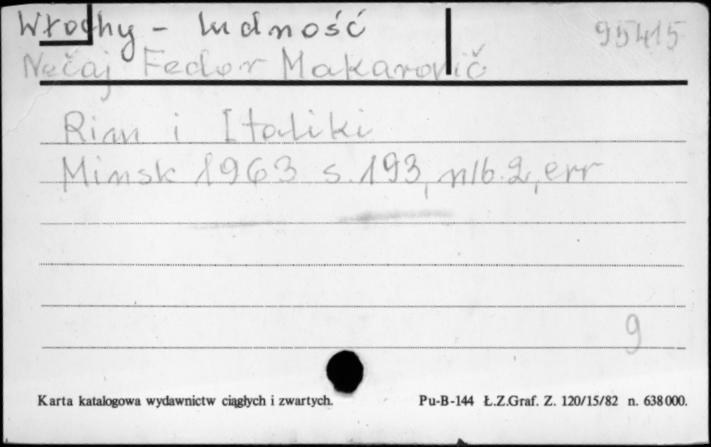 Włochy - ludność
95415
Nečaj Fedor Makarovič
Rim i Italiki
Minsk 1963 s. 193, nlb. 2, err
9
Karta katalogowa wydawnictw ciągłych i zwartych. Pu-B-144 Ł.Z.Graf. Z. 120/15/82 n. 638000.